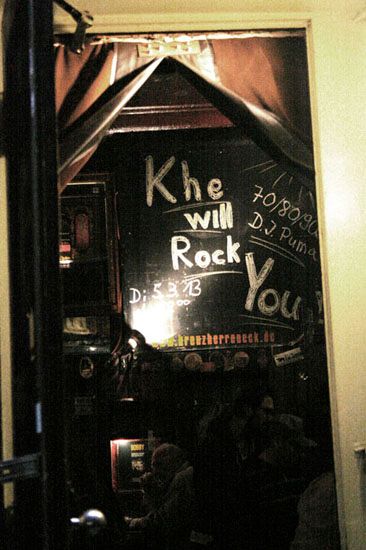 Khe
will
Rock
You
70/80/90
D.J. Puma
Di 5.3.13
www.kreuzherreneck.de